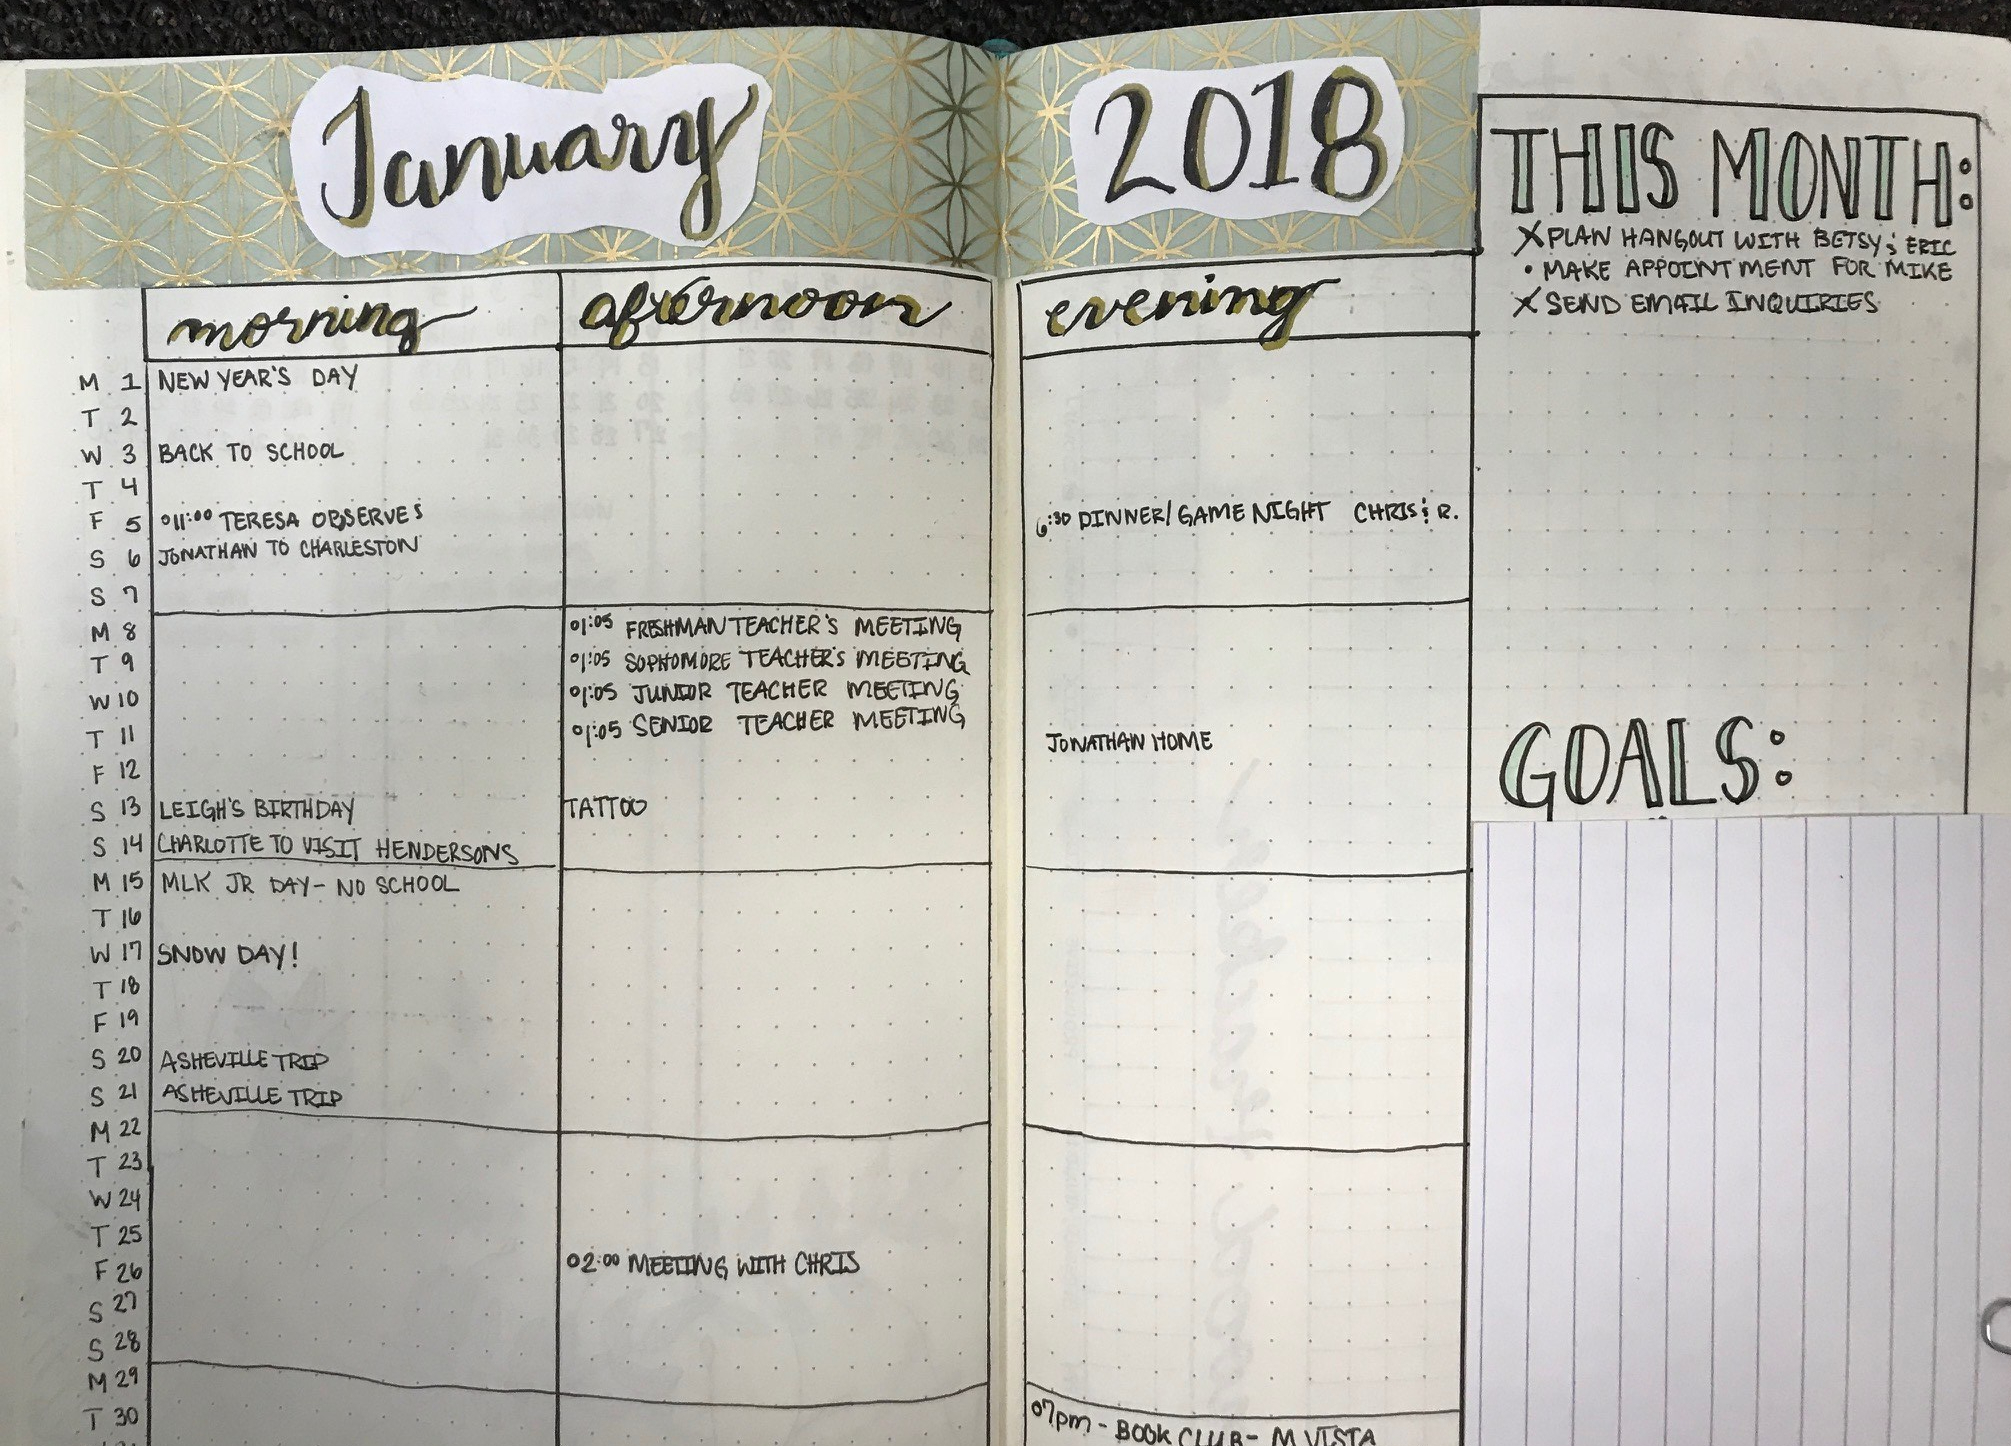 January 2018
THIS MONTH:
X PLAN HANGOUT WITH BETSY & ERIC
• MAKE APPOINTMENT FOR MIKE
X SEND EMAIL INQUIRIES
morning afternoon evening
M 1 NEW YEAR'S DAY
T 2
W 3 BACK TO SCHOOL
T 4
F 5 o11:00 TERESA OBSERVES 6:30 DINNER/GAME NIGHT CHRIS & R.
S 6 JONATHAN TO CHARLESTON
S 7
M 8 o1:05 FRESHMAN TEACHER'S MEETING
T 9 o1:05 SOPHOMORE TEACHER'S MEETING
W 10 o1:05 JUNIOR TEACHER MEETING
T 11 o1:05 SENIOR TEACHER MEETING JONATHAN HOME
F 12
S 13 LEIGH'S BIRTHDAY TATTOO
S 14 CHARLOTTE TO VISIT HENDERSONS
M 15 MLK JR DAY - NO SCHOOL
T 16
W 17 SNOW DAY!
T 18
F 19
S 20 ASHEVILLE TRIP
S 21 ASHEVILLE TRIP
M 22
T 23
W 24
T 25
F 26 o2:00 MEETING WITH CHRIS
S 27
S 28
M 29
T 30 o7pm - BOOK CLUB - M VISTA
GOALS: